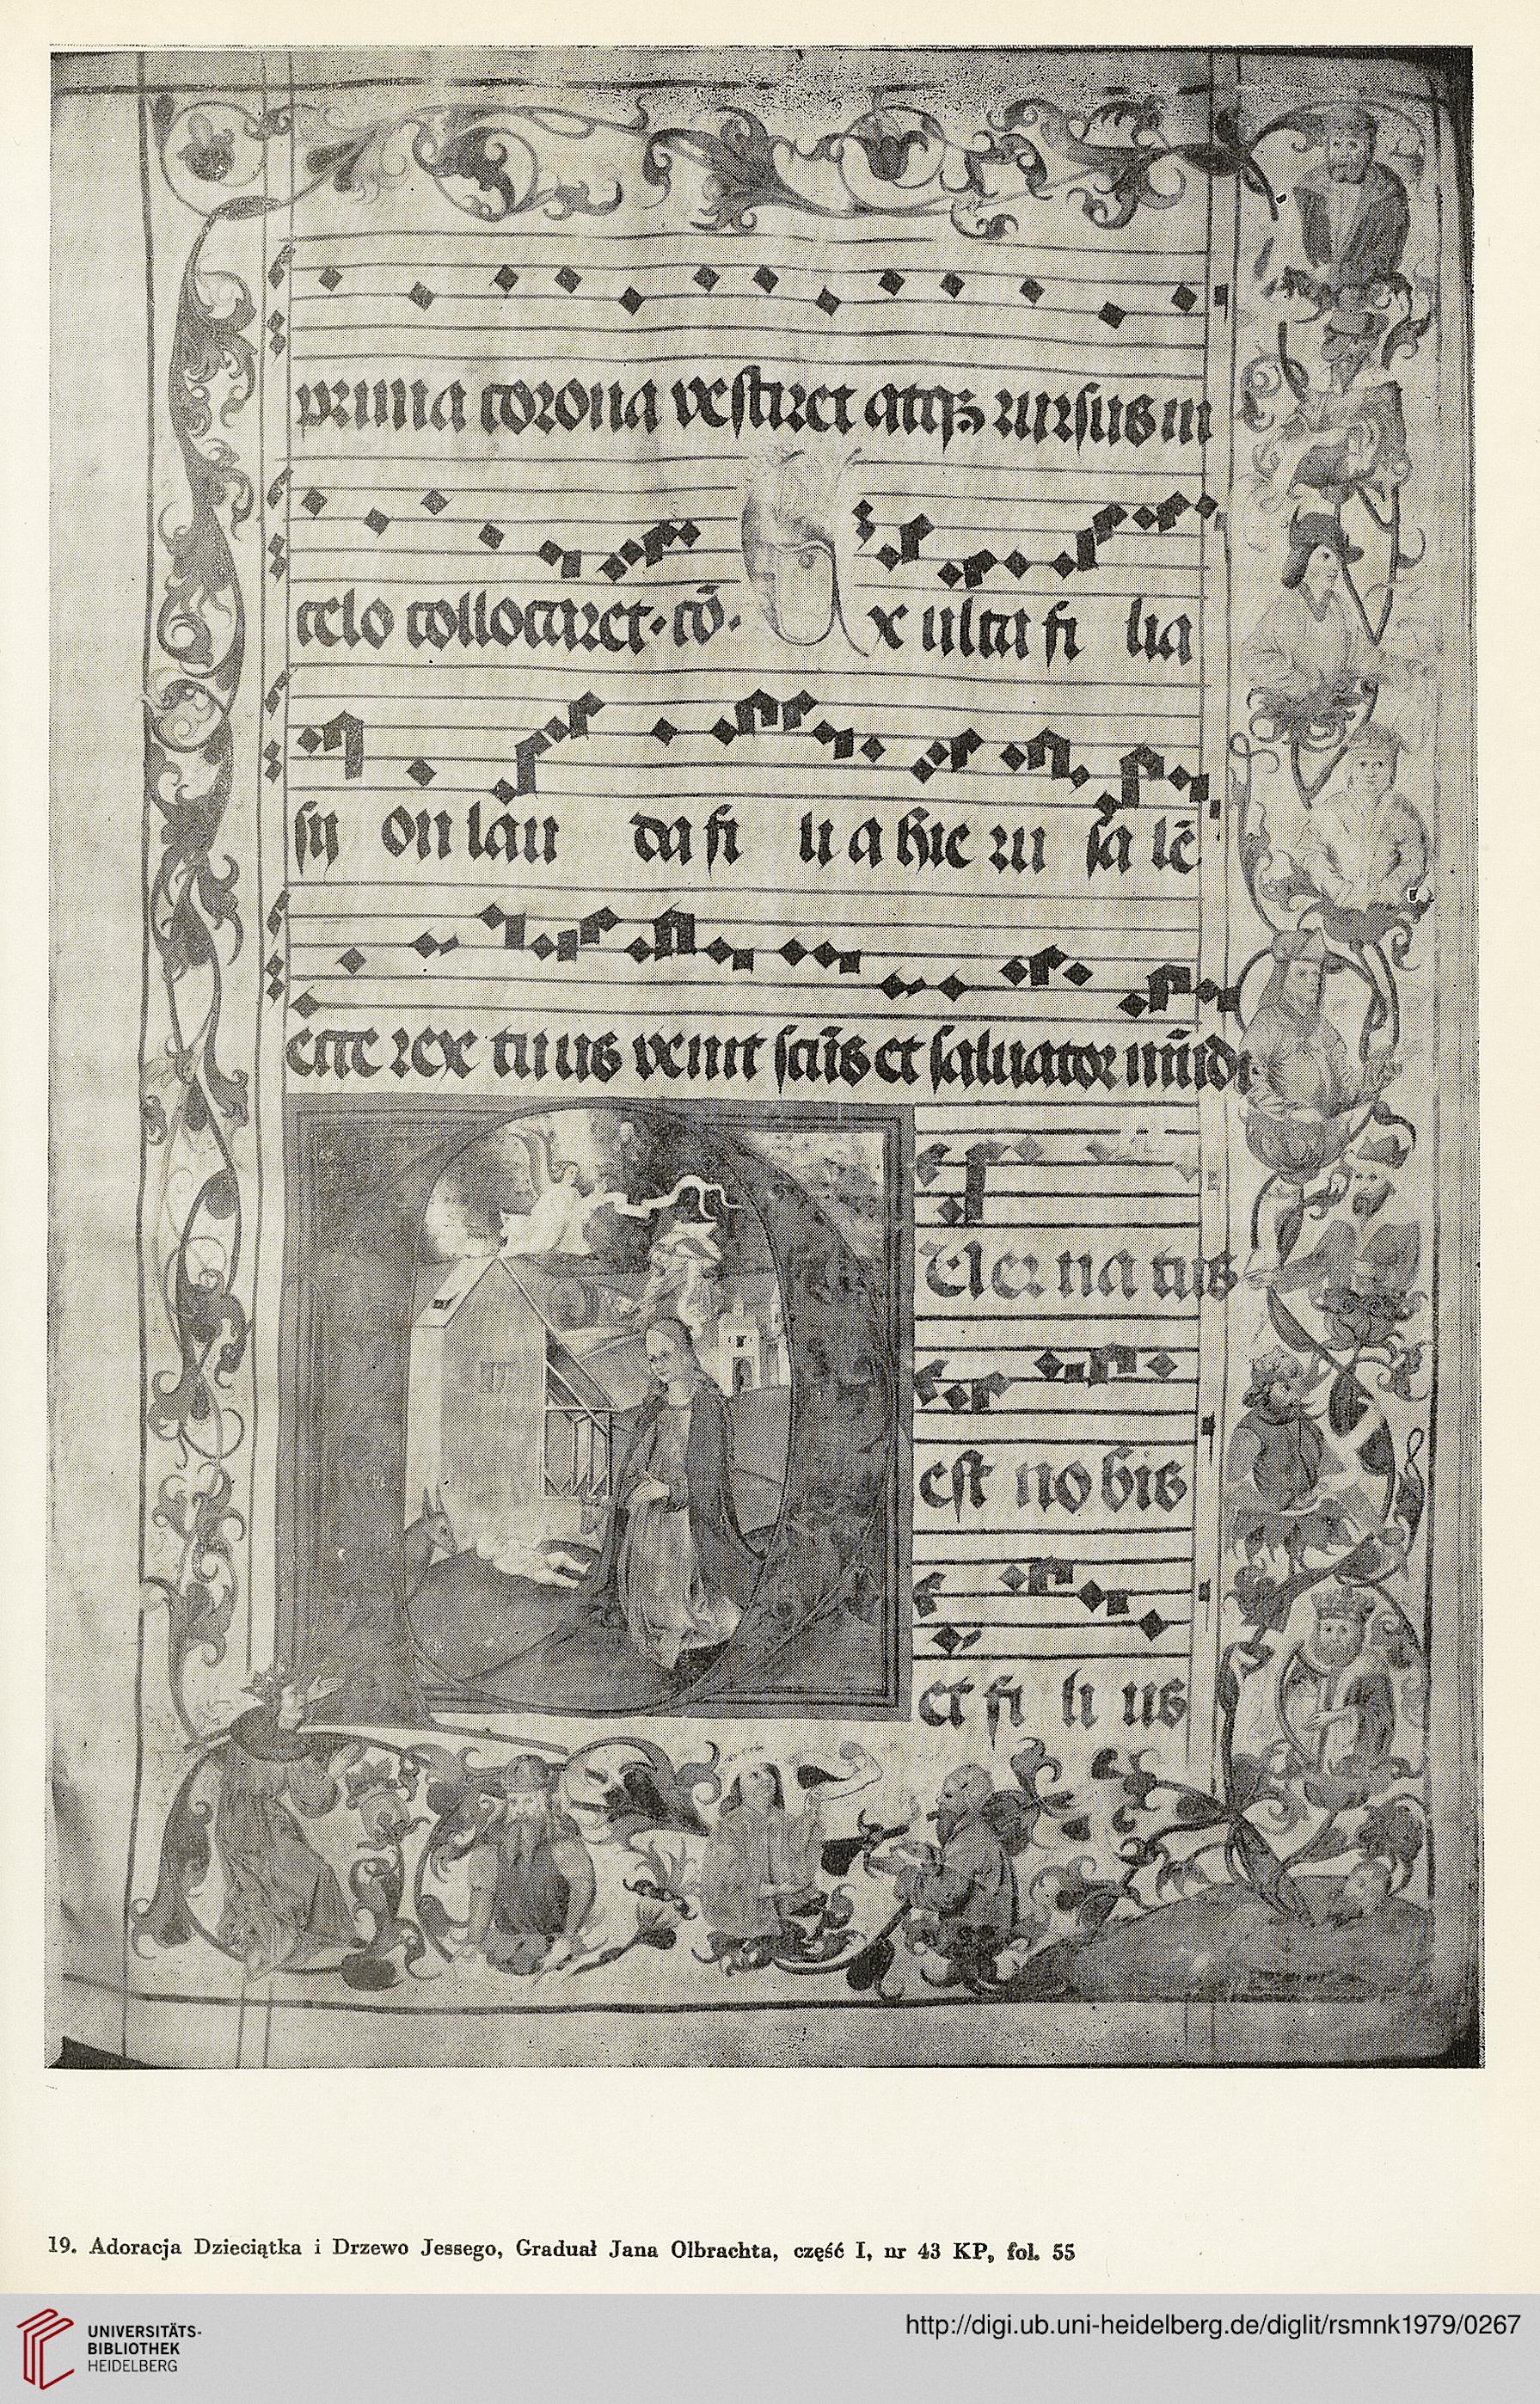 prima corona vestiret atqꝫ rursus in
celo collocaret · cō · Ex ulta fi lia
sy on lau da fi li a hie ru sa lē
ecce rex tuus venit sctūs et saluator mūdi
Uer na tus
est no bis
et fi li us
19. Adoracja Dzieciątka i Drzewo Jessego, Graduał Jana Olbrachta, część I, nr 43 KP, fol. 55
UNIVERSITÄTS-
BIBLIOTHEK
HEIDELBERG
http://digi.ub.uni-heidelberg.de/diglit/rsmnk1979/0267